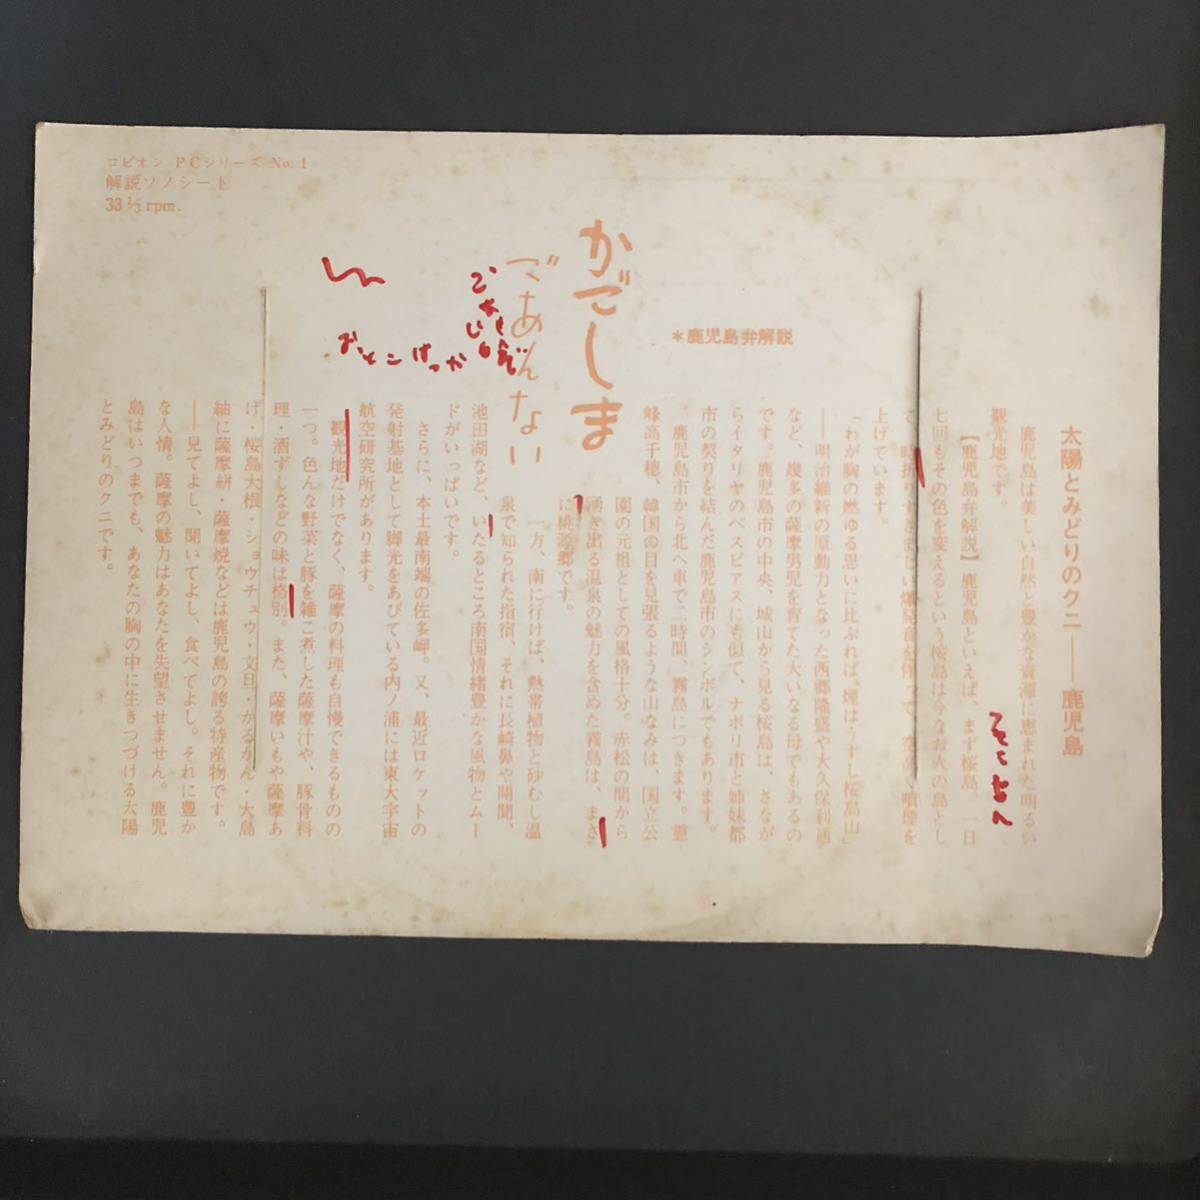 コピオン PCシリーズ No.1
解説ソノシート
33⅓rpm.
かごしま
ごあんない
＊鹿児島弁解説
太陽とみどりのクニ――鹿児島
鹿児島は美しい自然と豊かな資源に恵まれた明るい
観光地です。
【鹿児島弁解説】鹿児島といえば、まず桜島。一日
七回もその色を変えるという桜島は今なお火の島とし
上げています。
「わが胸の燃ゆる思いに比ぶれば、煙はうすし桜島山」
――明治維新の原動力となった西郷隆盛や大久保利通
など、幾多の薩摩男児を育てた大いなる母でもあるの
です。鹿児島市の中央、城山から見る桜島は、さなが
らイタリヤのベスビアスにも似て、ナポリ市と姉妹都
市の契りを結んだ鹿児島市のシンボルでもあります。
鹿児島市から北へ車で二時間、霧島につきます。
峰高千穂、韓国の目を見張るような山なみは、国立公
園の元祖としての風格十分。赤松の間から
湧き出る温泉の魅力を含めた霧島は、まさ
に桃源郷です。
一方、南に行けば、熱帯植物と砂むし温
泉で知られた指宿、それに長崎鼻や開聞、
池田湖など、いたるところ南国情緒豊かな風物とムー
ドがいっぱいです。
さらに、本土最南端の佐多岬。又、最近ロケットの
発射基地として脚光をあびている内ノ浦には東大宇宙
航空研究所があります。
観光地だけでなく、薩摩の料理も自慢できるものの
一つ。色んな野菜と豚を雑こ煮した薩摩汁や、豚骨料
理・酒ずしなどの味は格別 また、薩摩いもや薩摩あ
げ・桜島大根・ショウチュウ・文旦・かるかん・大島
紬に薩摩絣・薩摩焼などは鹿児島の誇る特産物です。
――見てよし、聞いてよし、食べてよし。それに豊か
な人情。薩摩の魅力はあなたを失望させません。鹿児
島はいつまでも、あなたの胸の中に生きつづける太陽
とみどりのクニです。